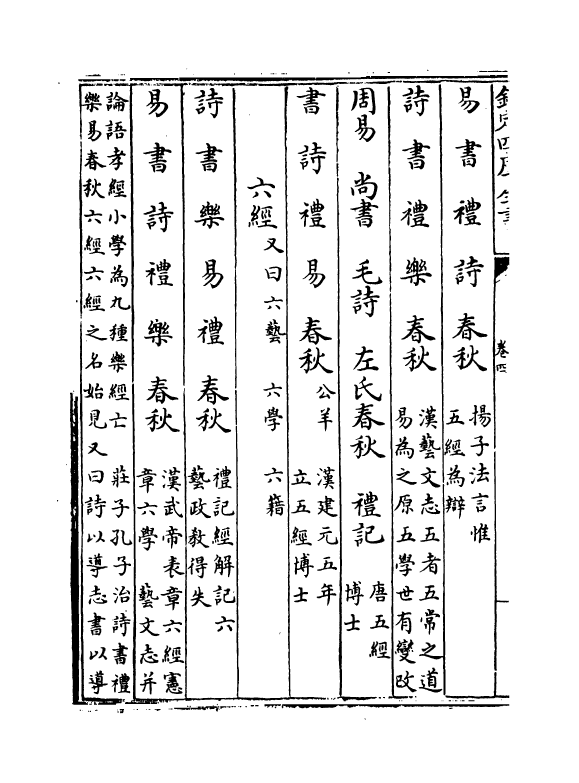 欽定四庫全書
卷四
易　書　禮　詩　春秋　揚子法言惟五經為辯
詩　書　禮　樂　春秋　漢藝文志五者五常之道易為之原五學世有變改
周易　尚書　毛詩　左氏春秋　禮記　唐五經博士
書　詩　禮　易　春秋公羊　漢建元五年立五經博士
六經又曰六藝　六學　六籍
詩　書　樂　易　禮　春秋　禮記經解記六藝政教得失
易　書　詩　禮　樂　春秋　漢武帝表章六經憲章六學　藝文志并
論語孝經小學為九種樂經亡　莊子孔子治詩書禮樂易春秋六經六經之名始見又曰詩以導志書以導